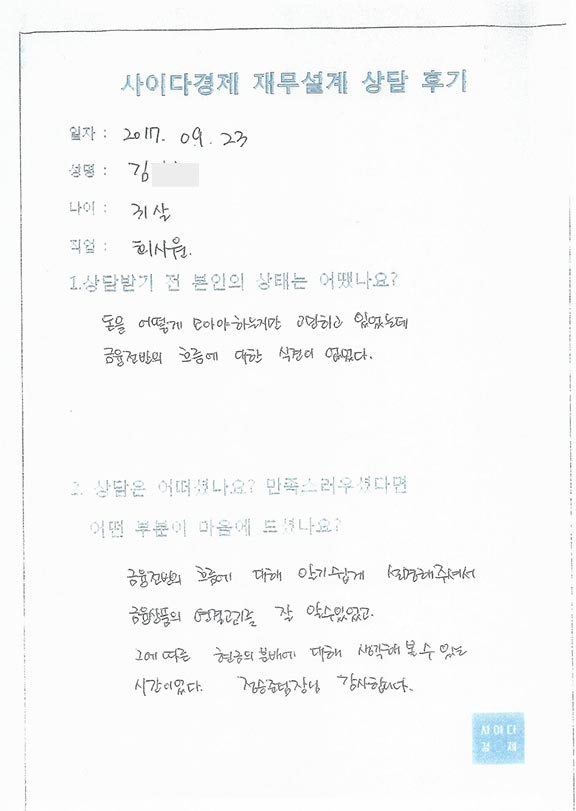 사이다경제 재무설계 상담 후기
일자 : 2017. 09. 23
성명 : 김
나이 : 31살
직업 : 회사원.
1.상담받기 전 본인의 상태는 어땠나요?
돈을 어떻게 모아야하는지만 고민하고 있었는데
금융전반의 흐름에 대한 식견이 없었다.
2. 상담은 어떠셨나요? 만족스러우셨다면
어떤 부분이 마음에 드셨나요?
금융전반의 흐름에 대해 알기쉽게 설명해주셔서
금융상품의 연결고리를 잘 알수있었고.
그에 따른 현금의 분배에 대해 생각해 볼 수 있는
시간이었다. 정승준팀장님 감사합니다.
사이다
경제